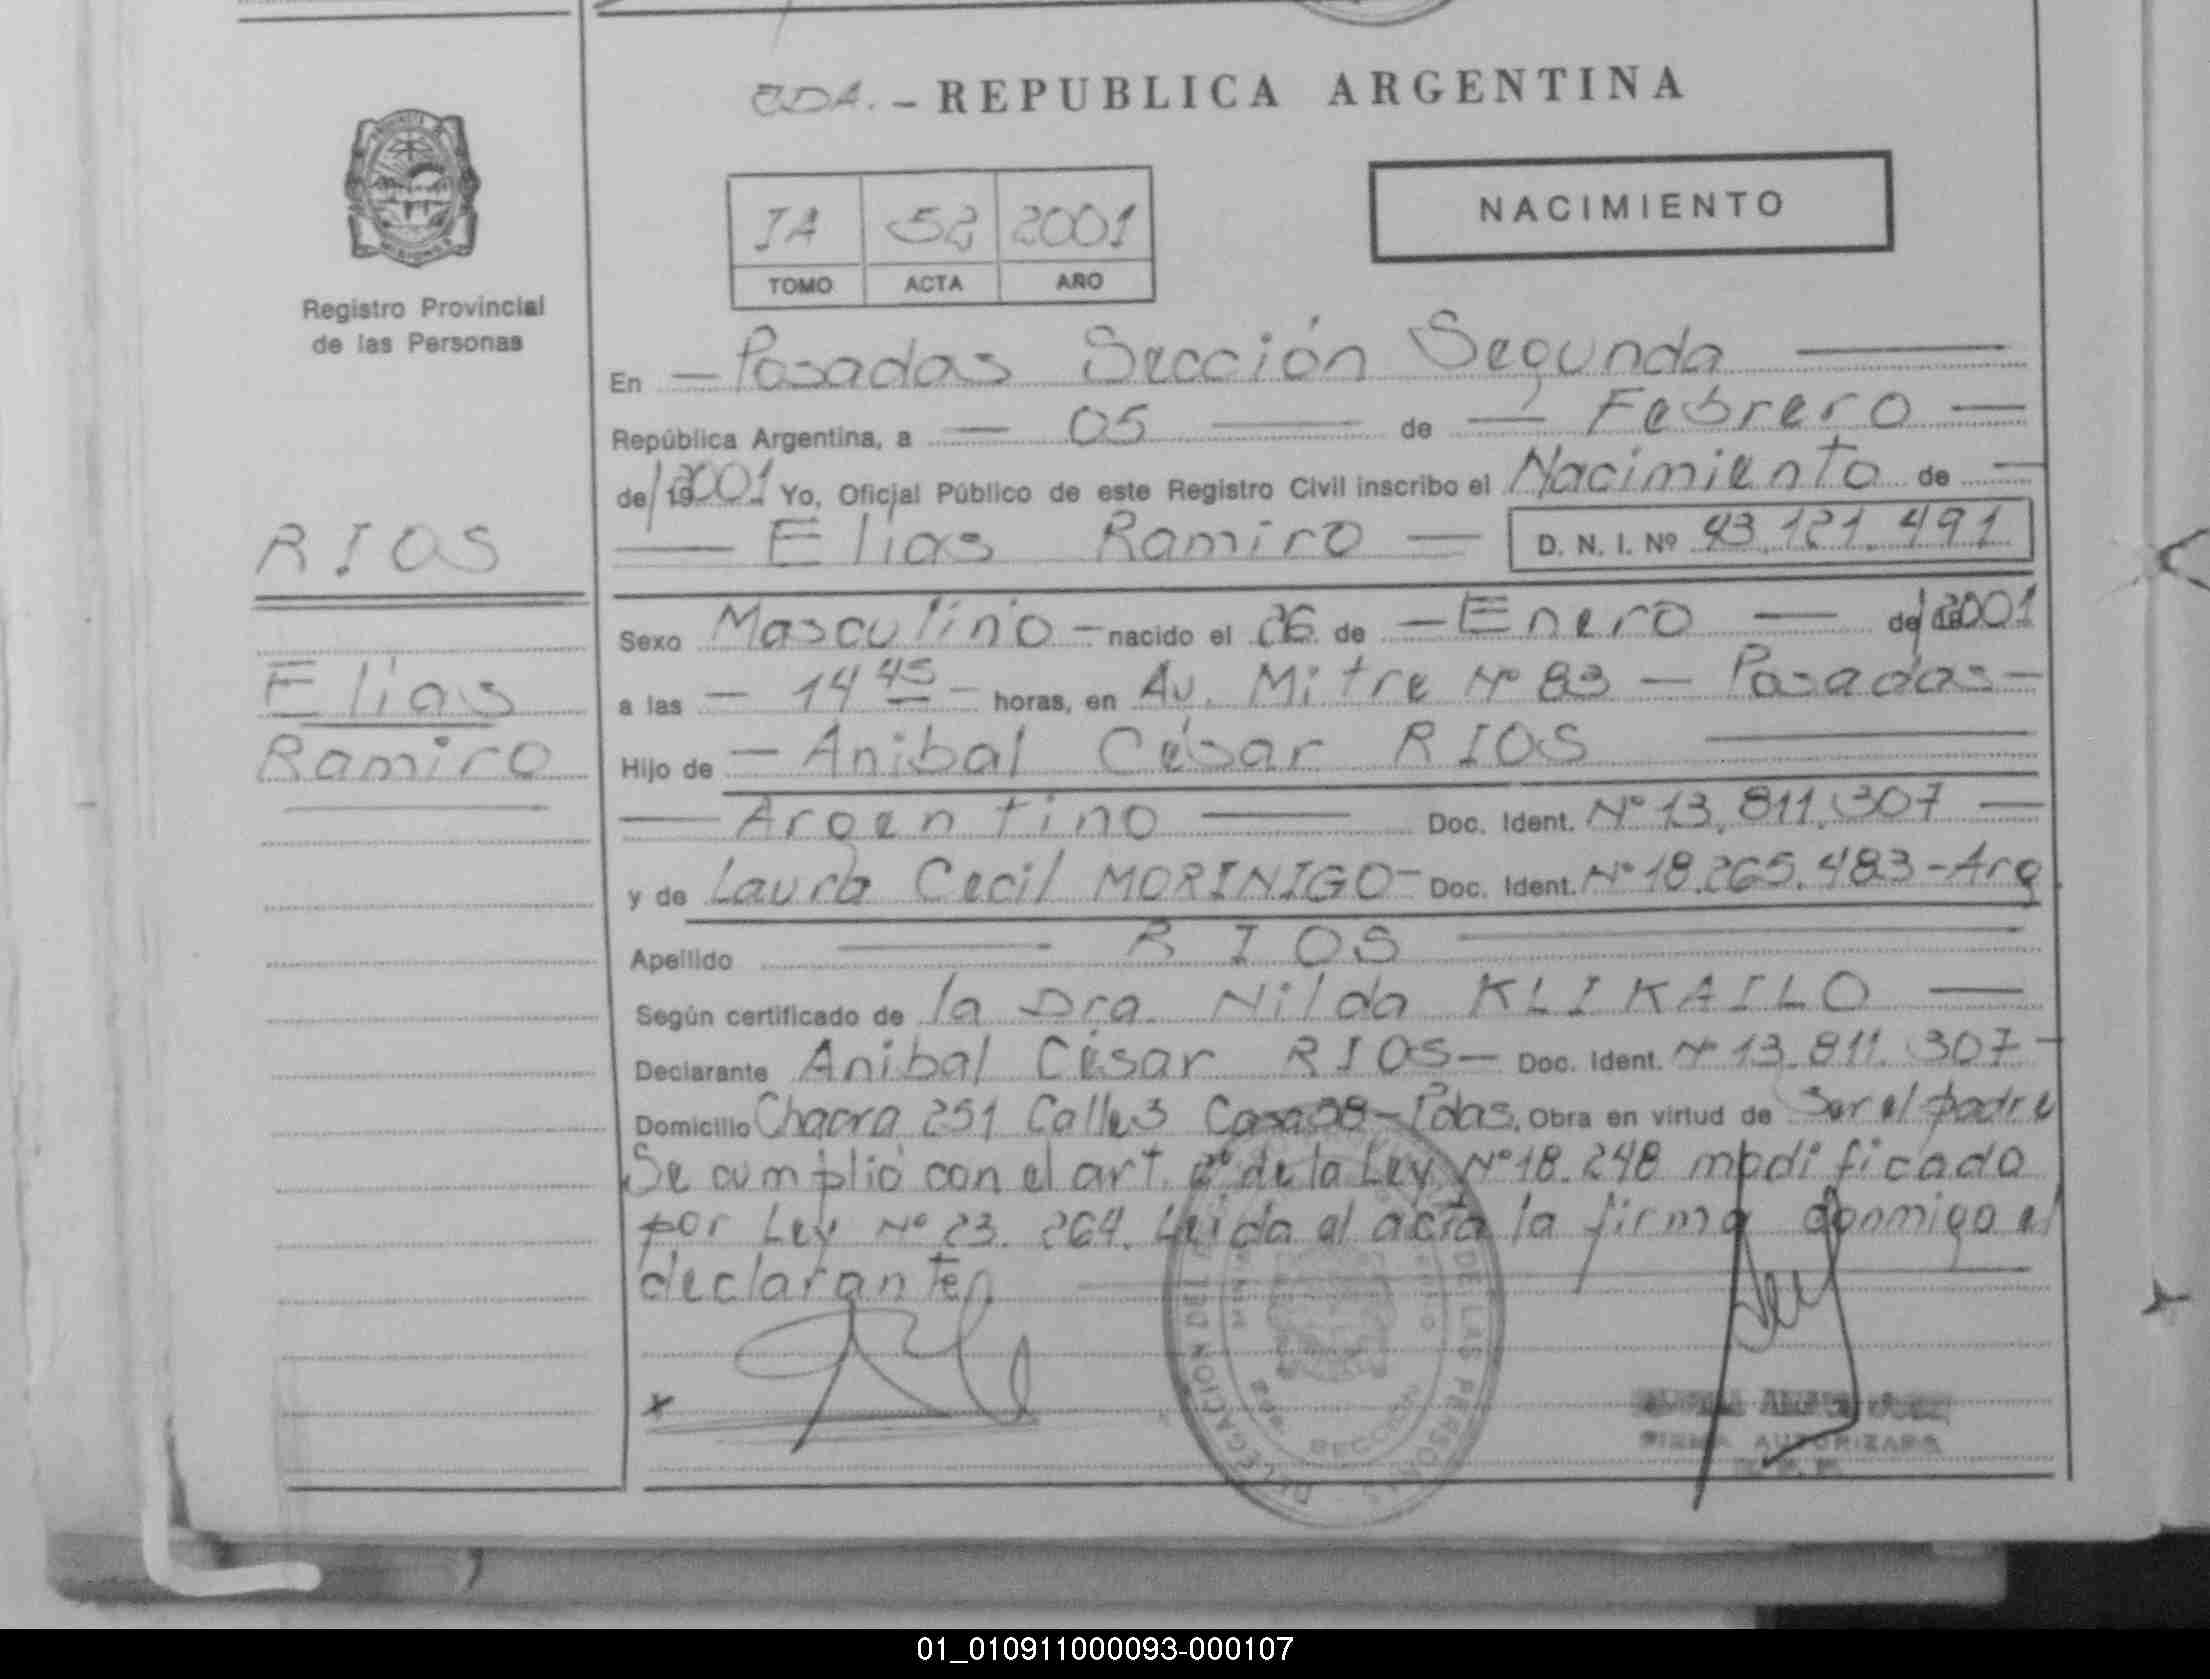 CDA. - REPUBLICA ARGENTINA
IA 52 2001
TOMO ACTA AÑO
NACIMIENTO
Registro Provincial
de las Personas
RIOS
Elias
Ramiro
En — Posadas Sección Segunda —
República Argentina, a — 05 — de — Febrero —
de 2001 Yo, Oficial Público de este Registro Civil inscribo el Nacimiento de —
— Elias Ramiro — D. N. I. Nº 43.121.491
Sexo Masculino - nacido el 26 de — Enero — de 2001
a las — 14 45 — horas, en Av. Mitre Nº 83 — Posadas —
Hijo de — Anibal César RIOS —
— Argentino — Doc. Ident. Nº 13.811.307 —
y de Laura Cecil MORINIGO - Doc. Ident. Nº 18.265.483 - Arg
Apellido — RIOS —
Según certificado de la Dra. Nilda KLIKAILO —
Declarante Anibal César RIOS — Doc. Ident. Nº 13.811.307 -
Domicilio Chacra 251 Calle 3 Casa 38 - Pdas. Obra en virtud de Ser el padre
Se cumplió con el art. 2º de la Ley Nº 18.248 modificado
por Ley Nº 23.264. Leida el acta la firma conmigo el
declarante
x
DELEGACION DEL DE LAS PERSONAS
SECCION
FIRMA AUTORIZADA
01_010911000093-000107